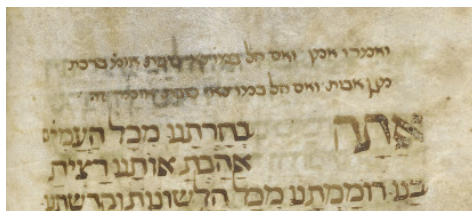 ואמרו אמן ואם חל במוצאי שבת אומ' ברכת
מעין אבות ואם חל במוצאי שבת אומרים זה
אַתָּה בְחַרְתָּנוּ מִכָּל הָעַמִּים
אָהַבְתָּ אוֹתָנוּ רָצִיתָ
בָּנוּ רוֹמַמְתָּנוּ מִכָּל הַלְּשׁוֹנוֹת וְקִדַּשְׁתָּנוּ